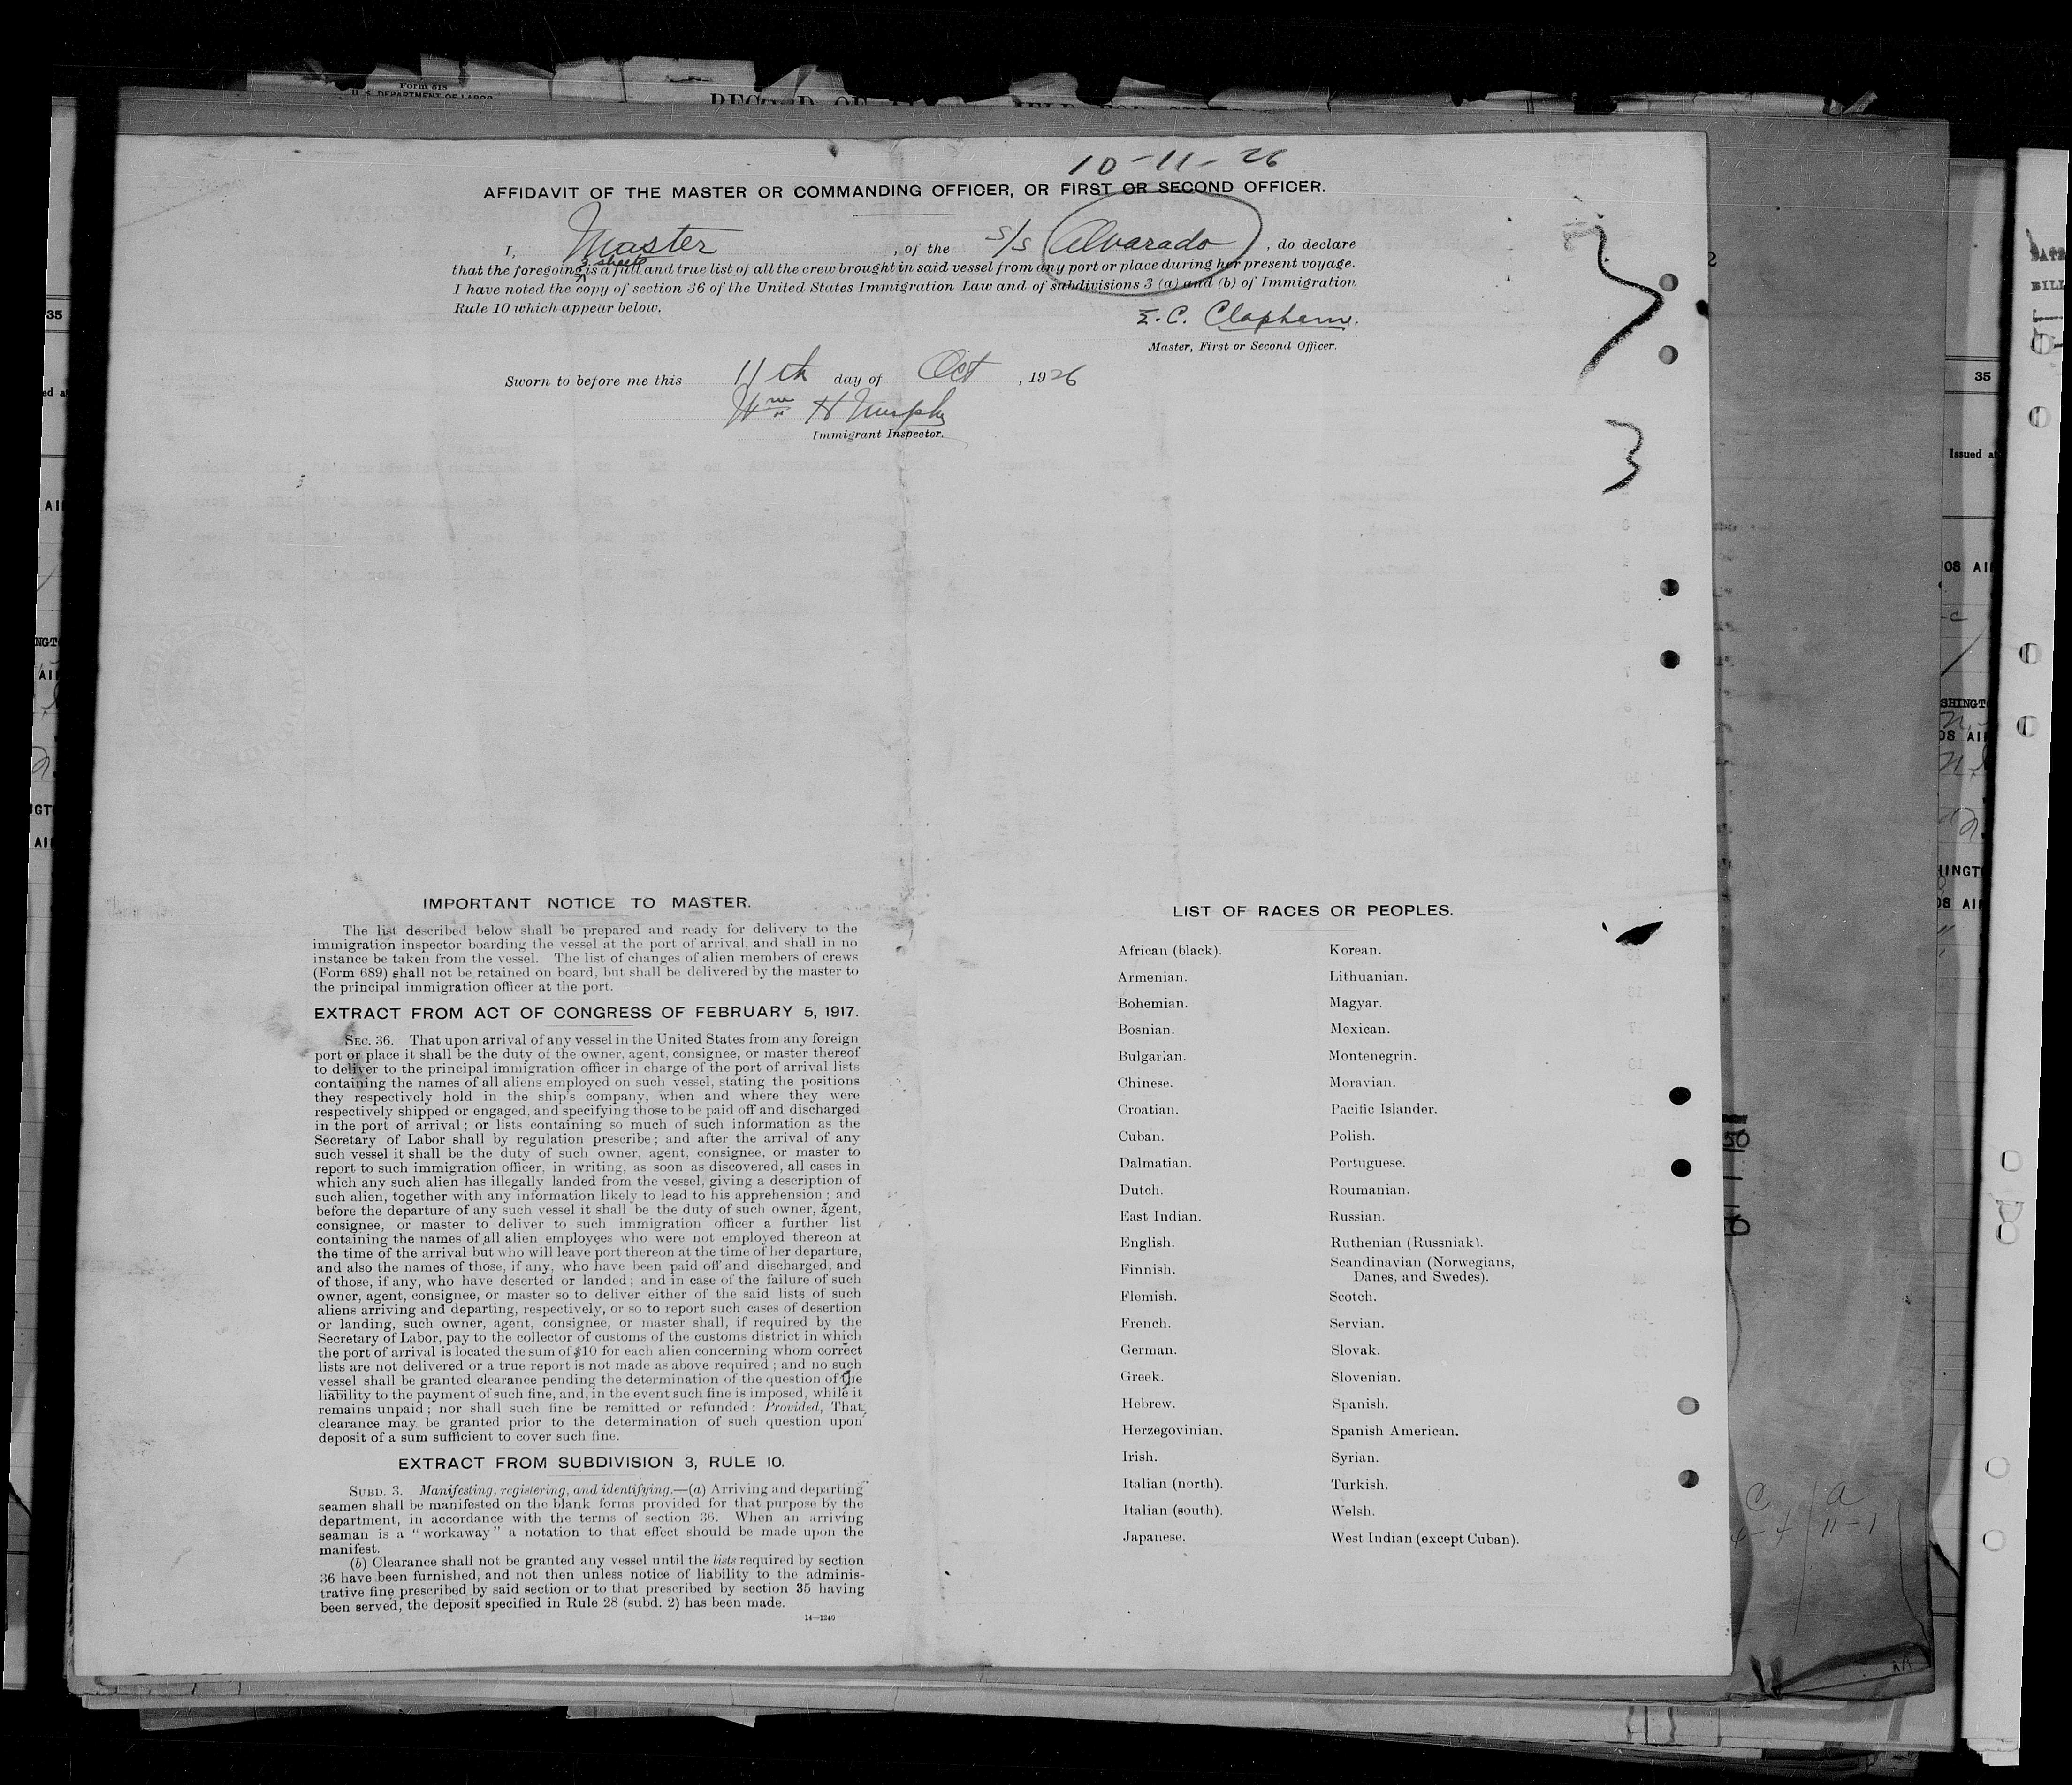 Form 818
U. S. DEPARTMENT OF LABOR
10-11-26
AFFIDAVIT OF THE MASTER OR COMMANDING OFFICER, OR FIRST OR SECOND OFFICER.
I, Master , of the S/S Alvarado , do declare
3 sheets
that the foregoing is a full and true list of all the crew brought in said vessel from any port or place during her present voyage.
I have noted the copy of section 36 of the United States Immigration Law and of subdivisions 3 (a) and (b) of Immigration
Rule 10 which appear below.
E. C. Clapham.
Master, First or Second Officer.
Sworn to before me this 11th day of Oct , 1926
Wm H Murphy
Immigrant Inspector.
3
IMPORTANT NOTICE TO MASTER.
The list described below shall be prepared and ready for delivery to the
immigration inspector boarding the vessel at the port of arrival, and shall in no
instance be taken from the vessel. The list of changes of alien members of crews
(Form 689) shall not be retained on board, but shall be delivered by the master to
the principal immigration officer at the port.
EXTRACT FROM ACT OF CONGRESS OF FEBRUARY 5, 1917.
SEC. 36. That upon arrival of any vessel in the United States from any foreign
port or place it shall be the duty of the owner, agent, consignee, or master thereof
to deliver to the principal immigration officer in charge of the port of arrival lists
containing the names of all aliens employed on such vessel, stating the positions
they respectively hold in the ship's company, when and where they were
respectively shipped or engaged, and specifying those to be paid off and discharged
in the port of arrival; or lists containing so much of such information as the
Secretary of Labor shall by regulation prescribe; and after the arrival of any
such vessel it shall be the duty of such owner, agent, consignee, or master to
report to such immigration officer, in writing, as soon as discovered, all cases in
which any such alien has illegally landed from the vessel, giving a description of
such alien, together with any information likely to lead to his apprehension; and
before the departure of any such vessel it shall be the duty of such owner, agent,
consignee, or master to deliver to such immigration officer a further list
containing the names of all alien employees who were not employed thereon at
the time of the arrival but who will leave port thereon at the time of her departure,
and also the names of those, if any, who have been paid off and discharged, and
of those, if any, who have deserted or landed; and in case of the failure of such
owner, agent, consignee, or master so to deliver either of the said lists of such
aliens arriving and departing, respectively, or so to report such cases of desertion
or landing, such owner, agent, consignee, or master shall, if required by the
Secretary of Labor, pay to the collector of customs of the customs district in which
the port of arrival is located the sum of $10 for each alien concerning whom correct
lists are not delivered or a true report is not made as above required; and no such
vessel shall be granted clearance pending the determination of the question of the
liability to the payment of such fine, and, in the event such fine is imposed, while it
remains unpaid; nor shall such fine be remitted or refunded: Provided, That
clearance may be granted prior to the determination of such question upon
deposit of a sum sufficient to cover such fine.
EXTRACT FROM SUBDIVISION 3, RULE 10.
SUBD. 3. Manifesting, registering, and identifying.—(a) Arriving and departing
seamen shall be manifested on the blank forms provided for that purpose by the
department, in accordance with the terms of section 36. When an arriving
seaman is a "workaway" a notation to that effect should be made upon the
manifest.
(b) Clearance shall not be granted any vessel until the lists required by section
36 have been furnished, and not then unless notice of liability to the adminis-
trative fine prescribed by said section or to that prescribed by section 35 having
been served, the deposit specified in Rule 28 (subd. 2) has been made.
14—1240
LIST OF RACES OR PEOPLES.
African (black). Korean.
Armenian. Lithuanian.
Bohemian. Magyar.
Bosnian. Mexican.
Bulgarian. Montenegrin.
Chinese. Moravian.
Croatian. Pacific Islander.
Cuban. Polish.
Dalmatian. Portuguese.
Dutch. Roumanian.
East Indian. Russian.
English. Ruthenian (Russniak).
Finnish. Scandinavian (Norwegians,
Danes, and Swedes).
Flemish. Scotch.
French. Servian.
German. Slovak.
Greek. Slovenian.
Hebrew. Spanish.
Herzegovinian. Spanish American.
Irish. Syrian.
Italian (north). Turkish.
Italian (south). Welsh.
Japanese. West Indian (except Cuban).
35
35
Issued at